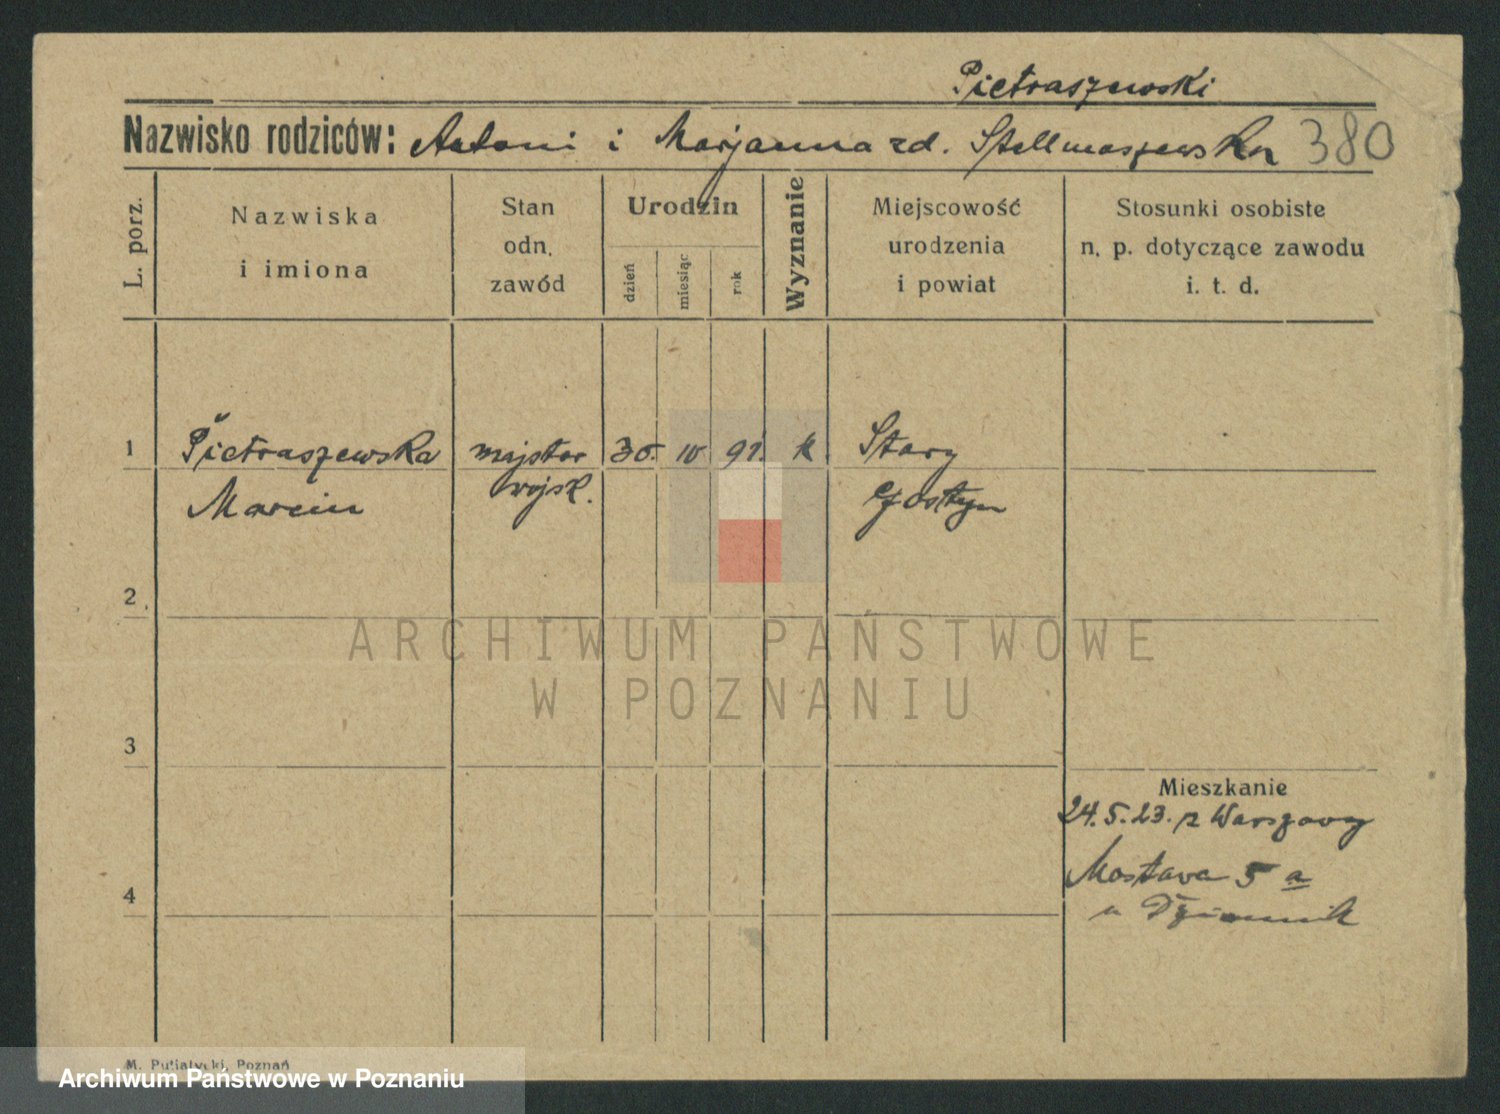 Pietraszewski
Nazwisko rodziców: Antoni i Marjanna zd. Stellmaszewska 380
L. porz.
Nazwiska
i imiona
Stan
odn.
zawód
Urodzin
dzień
miesiąc
rok
Wyznanie
Miejscowość
urodzenia
i powiat
Stosunki osobiste
n. p. dotyczące zawodu
i. t. d.
1 Pietraszewska majster 30. IV 91. k. Stary
Marcin wojsk. Gostyn
2
ARCHIWUM PAŃSTWOWE
W POZNANIU
3
Mieszkanie
24.5.23. z Warszawy
Mostava 5 a
4
u
M. Putiatycki, Poznań
Archiwum Państwowe w Poznaniu